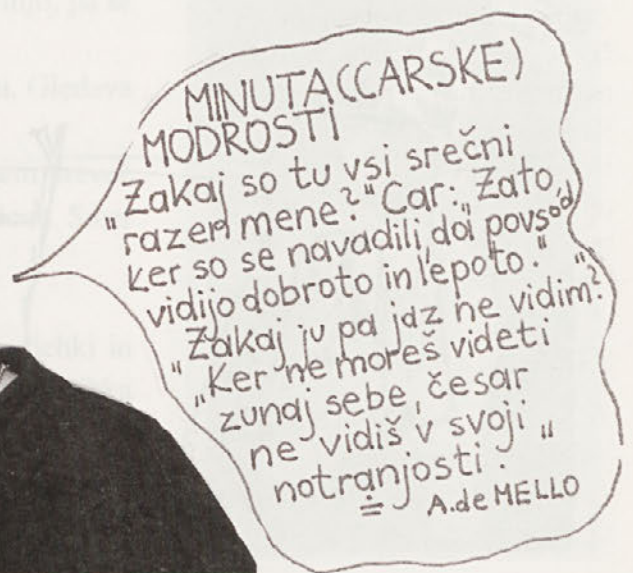 MINUTA (CARSKE)
MODROSTI
"Zakaj so tu vsi srečni
razen mene?" Car: „Zato,
ker so se navadili, da povsod
vidijo dobroto in lepoto."
"Zakaj ju pa jaz ne vidim?"
„Ker ne moreš videti
zunaj sebe, česar
ne vidiš v svoji
notranjosti."
A. de MELLO